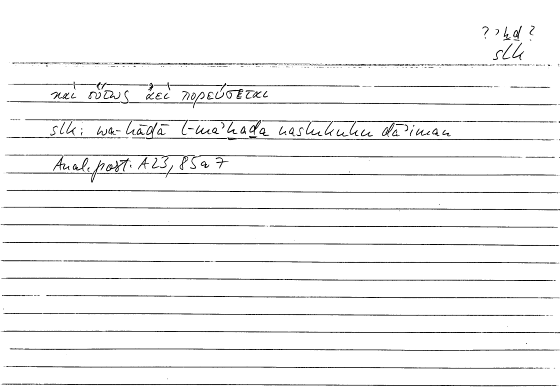 ? ʾḫḏ ?
slk
καὶ οὕτως ἀεὶ πορεύσεται
slk: wa-hāḏā l-maʾḫaḏa naslukuhu dāʾiman
Anal. post. A 23, 85a7